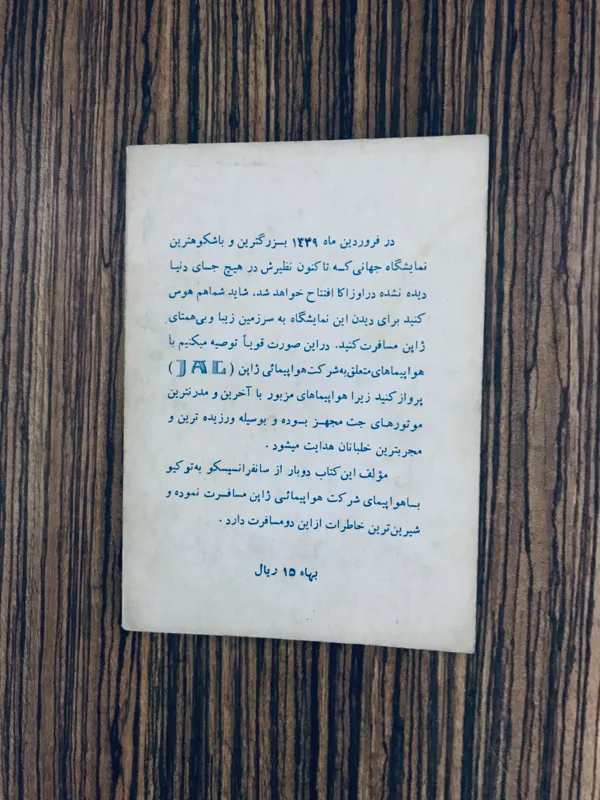 در فروردین ماه ۱۴۴۹ بـزرگترین و باشکوهترین
نمایشگاه جهانی کـه تا کنون نظیرش در هیچ جـای دنیـا
دیده نشده در اوزاکا افتتاح خواهد شد. شاید شماهم هوس
کنید برای دیدن این نمایشگاه به سرزمین زیبا و بی‌همتای
ژاپن مسافرت کنید. در این صورت قویـاً توصیه میکنیم با
هواپیماهای متعلق به شرکت هواپیمائی ژاپن ( JAL )
پرواز کنید زیرا هواپیماهای مزبور با آخرین و مدرنترین
موتورهـای جت مجهـز بـوده و بوسیله ورزیده ترین و
مجربترین خلبانان هدایت میشود .
مؤلف این کتاب دوبار از سانفرانـسیسکو به توکیو
بـاهواپیمای شرکت هواپیمائـی ژاپن مسافـرت نموده و
شیرین‌ترین خاطرات از این دو مسافرت دارد .
بهاء ۱۵ ریال